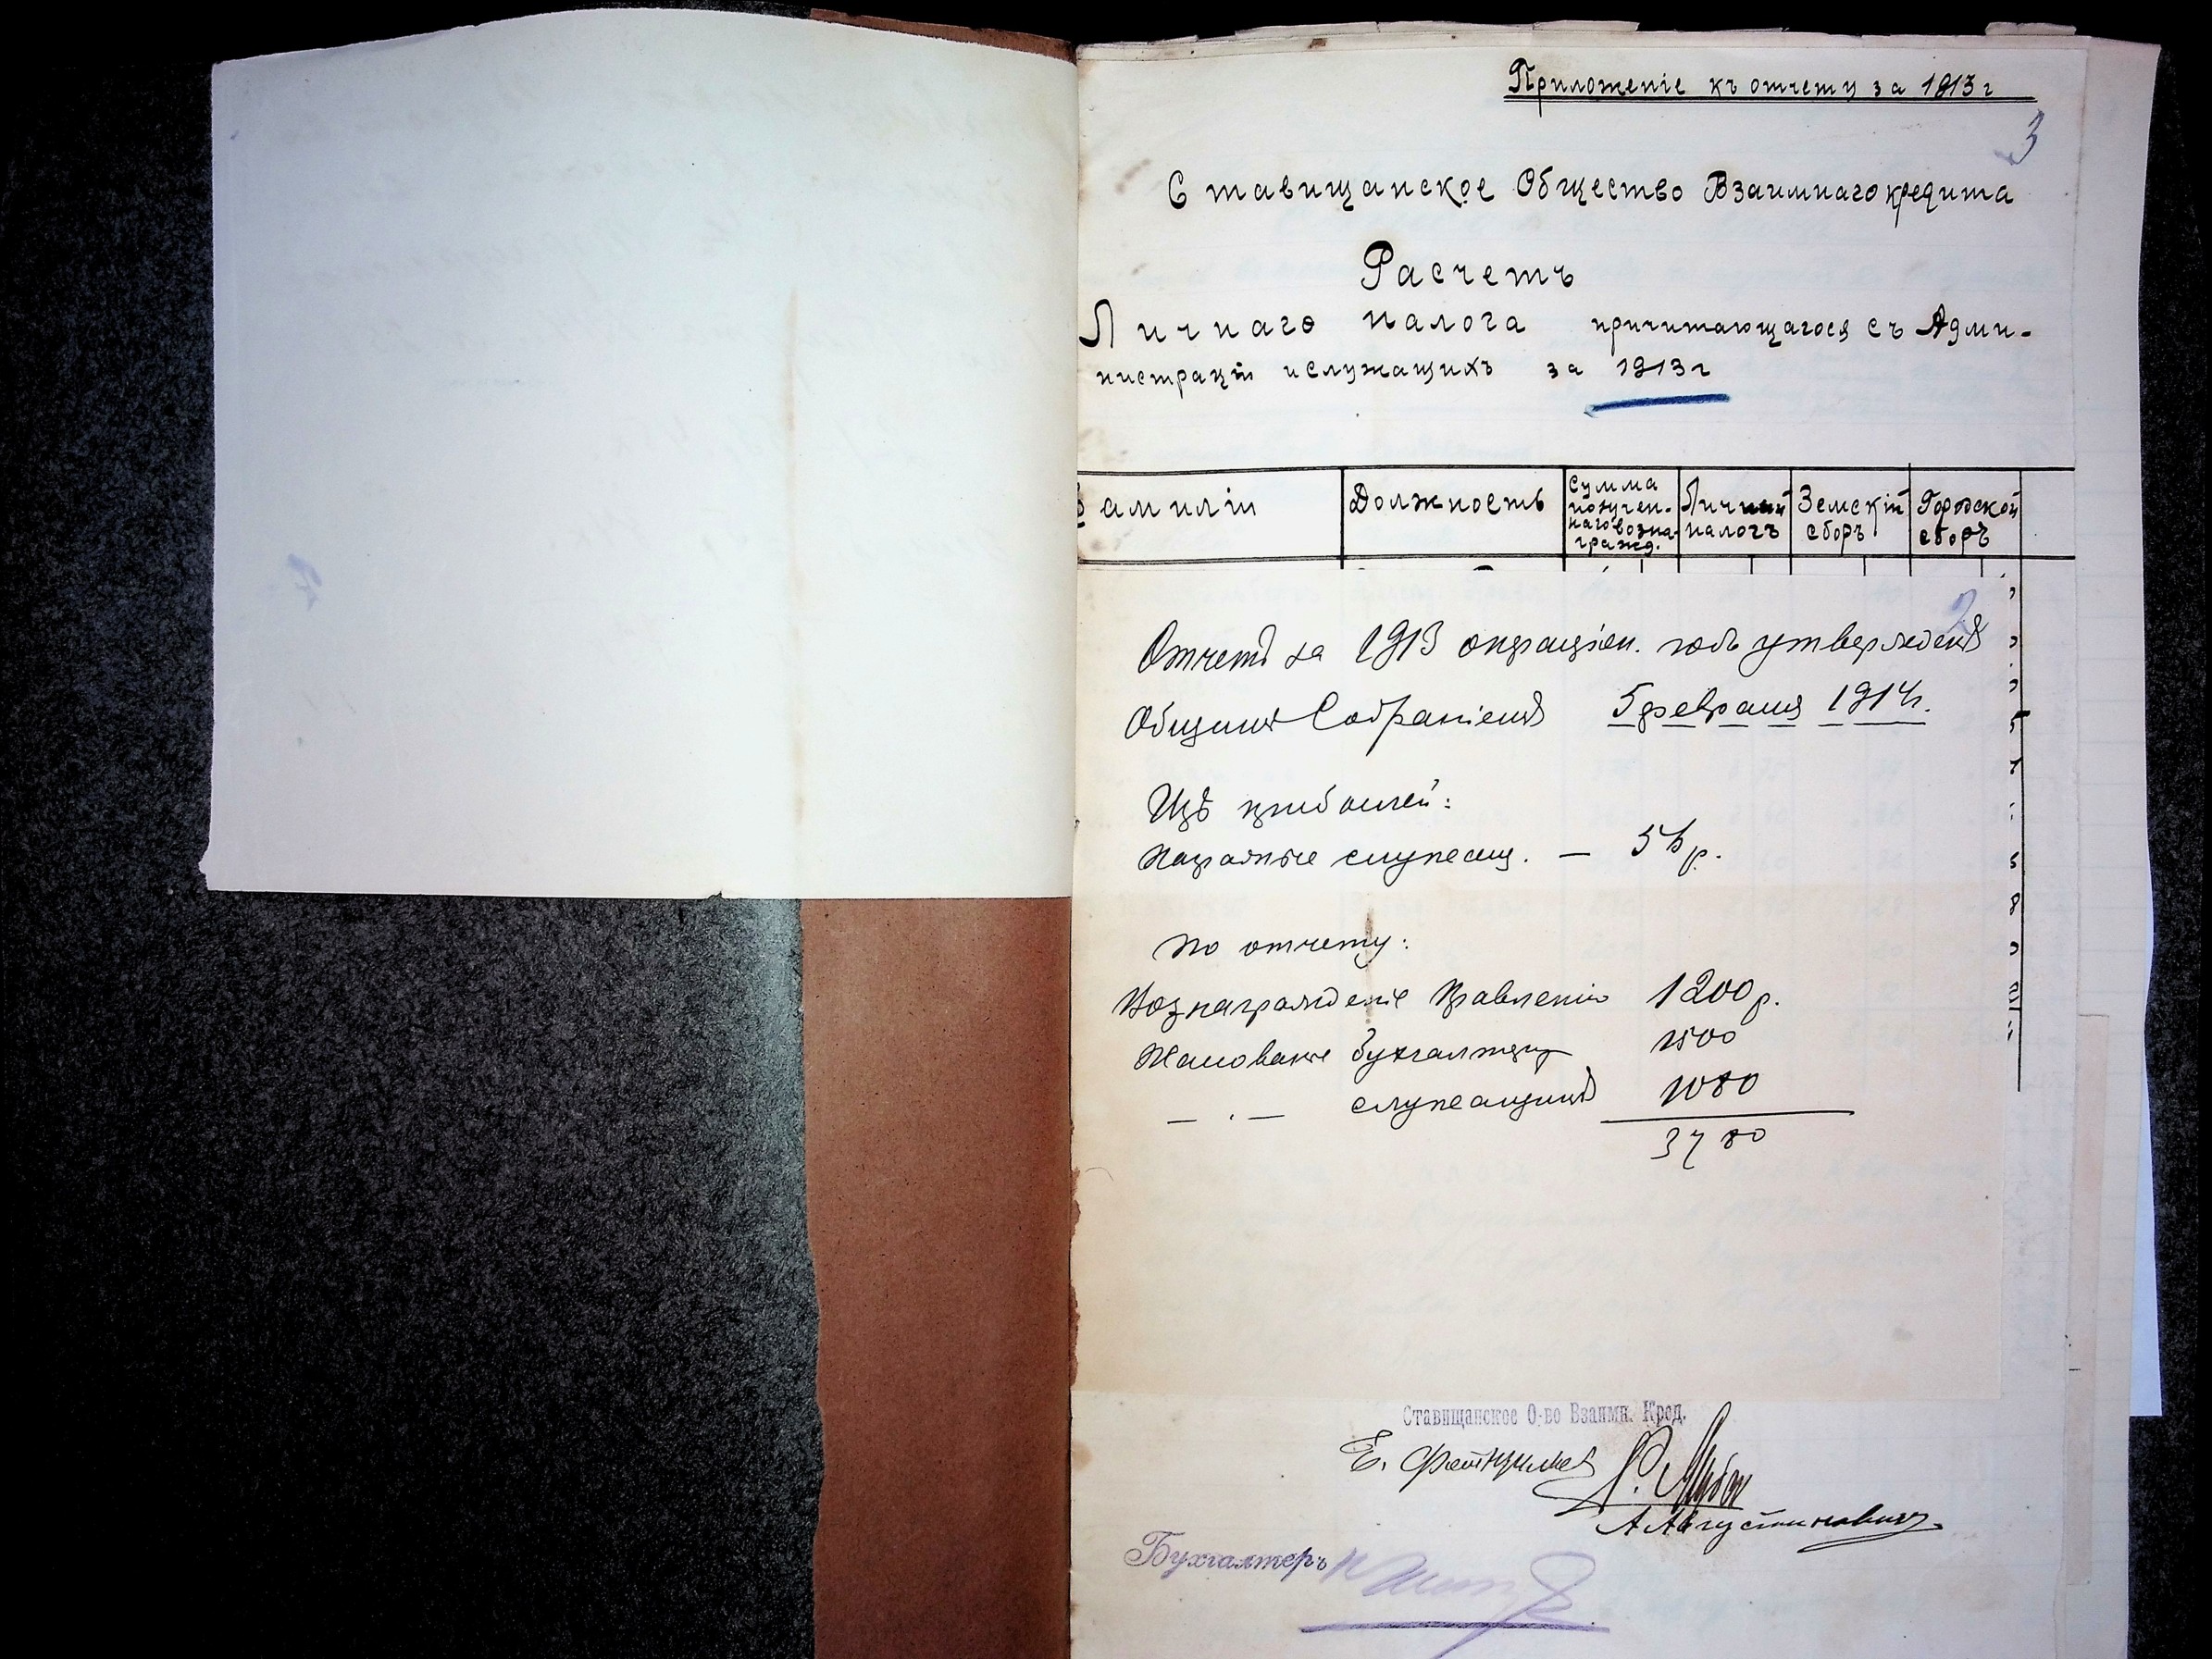 Приложеніе къ отчету за 1913 г
3
Ставищанское Общество Взаимнаго кредита
Расчетъ
Личнаго налога причитающагося съ Адми-
нистраціи и служащихъ за 1913 г
Фамиліи
Должность
Сумма
получен-
наго возна-
гражд.
Личный
налогъ
Земскій
сборъ
Городской
сборъ
2
Отчетъ за 1913 операціон. годъ утвержденъ
Общимъ Собраніемъ 5 февраля 1914 г.
Изъ прибылей:
Наградные служащ. —
По отчету:
Вознагражденіе Правленію 1200 р.
Жалованье бухгалтеру 1500
— . — служащимъ 1080
3780
Ставищанское О-во Взаимн. Кред.
А Августиновичъ
Бухгалтеръ